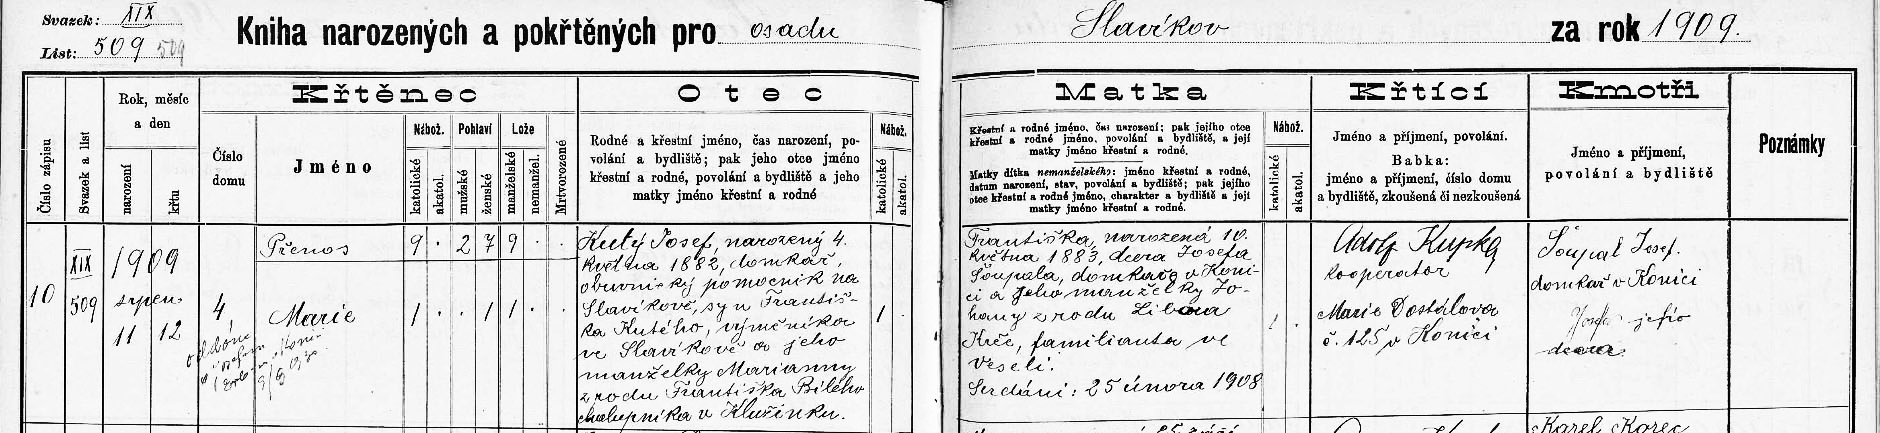 Svazek: XIX
List: 509 509
Kniha narozených a pokřtěných pro osadu Slavíkov za rok 1909.
Číslo zápisu
Svazek a list
Rok, měsíc
a den
narození
křtu
Křtěnec
Číslo
domu
Jméno
Nábož.
katolické
akatol.
Pohlaví
mužské
ženské
Lože
manželské
nemanžel.
Mrtvorozené
Otec
Rodné a křestní jméno, čas narození, po-
volání a bydliště; pak jeho otce jméno
křestní a rodné, povolání a bydliště a jeho
matky jméno křestní a rodné
Nábož.
katolické
akatol.
Matka
Křestní a rodné jméno, čas narození; pak jejího otce
křestní a rodné jméno, povolání a bydliště, a její
matky jméno křestní a rodné.
Matky dítka nemanželského: jméno křestní a rodné,
datum narození, stav, povolání a bydliště; pak jejího
otce křestní a rodné jméno, charakter a bydliště a její
matky jméno křestní a rodné.
Nábož.
katolické
akatol.
Křtící
Jméno a příjmení, povolání.
Babka:
jméno a příjmení, číslo domu
a bydliště, zkoušená či nezkoušená
Kmotři
Jméno a příjmení,
povolání a bydliště
Poznámky
Přenos 9 · 2 7 9 · ·
10
XIX
509
1909
srpen
11 12
4
oddána
Marie
1 · · 1 1 · ·
Kutý Josef, narozený 4.
května 1882, domkář,
obuvnický pomocník na
Slavíkově, syn Františ-
ka Kutého, výměnkáře
ve Slavíkově a jeho
manželky Marianny
z rodu Františka Bílého
chalupníka v Klužínku.
1 ·
Františka, narozená 10.
května 1883, dcera Josefa
Šoupala, domkáře v Koni-
ci a jeho manželky Jo-
hany z rodu Libora
Krče, familianta ve
Veselí.
Serdáni: 25 února 1908
1 ·
Adolf Kupka
kooperator
Marie Dostálova
č. 125 v Konici
Šoupal Josef.
domkář v Konici
Josefa jeho
dcera
Karel Korec